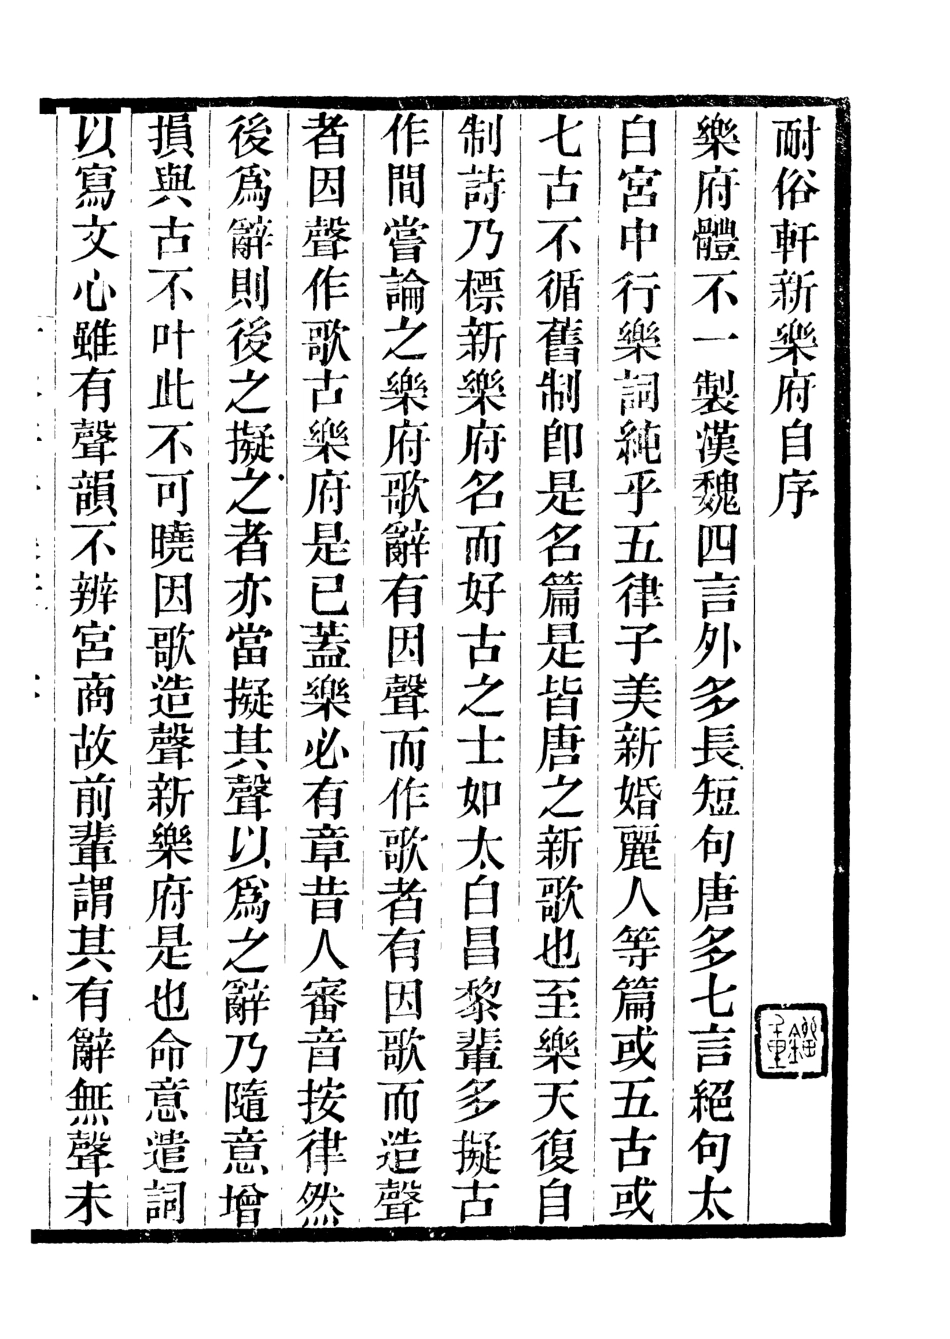 耐俗軒新樂府自序
樂府體不一製漢魏四言外多長短句唐多七言絕句太
白宮中行樂詞純乎五律子美新婚麗人等篇或五古或
七古不循舊制卽是名篇是皆唐之新歌也至樂天復自
制詩乃標新樂府名而好古之士如太白昌黎輩多擬古
作間嘗論之樂府歌辭有因聲而作歌者有因歌而造聲
者因聲作歌古樂府是已蓋樂必有章昔人審音按律然
後爲辭則後之擬之者亦當擬其聲以爲之辭乃隨意增
損與古不叶此不可曉因歌造聲新樂府是也命意遣詞
以寫文心雖有聲韻不辨宮商故前輩謂其有辭無聲未